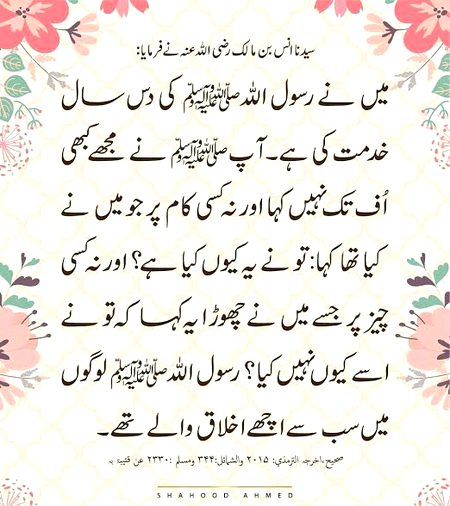 سیدنا انس بن مالک رضی اللہ عنہ نے فرمایا:
میں نے رسول اللہ ﷺ کی دس سال
خدمت کی ہے۔ آپ ﷺ نے مجھے کبھی
اُف تک نہیں کہا اور نہ کسی کام پر جو میں نے
کیا تھا کہا: تو نے یہ کیوں کیا ہے؟ اور نہ کسی
چیز پر جسے میں نے چھوڑا یہ کہا کہ تو نے
اسے کیوں نہیں کیا؟ رسول اللہ ﷺ لوگوں
میں سب سے اچھے اخلاق والے تھے۔
صحیح، اخرجہ الترمذي: ٢٠١٥ والشمائل: ٣٤٤ ومسلم: ٢٣٣٠ عن قتيبة بہ
SHAHOOD AHMED